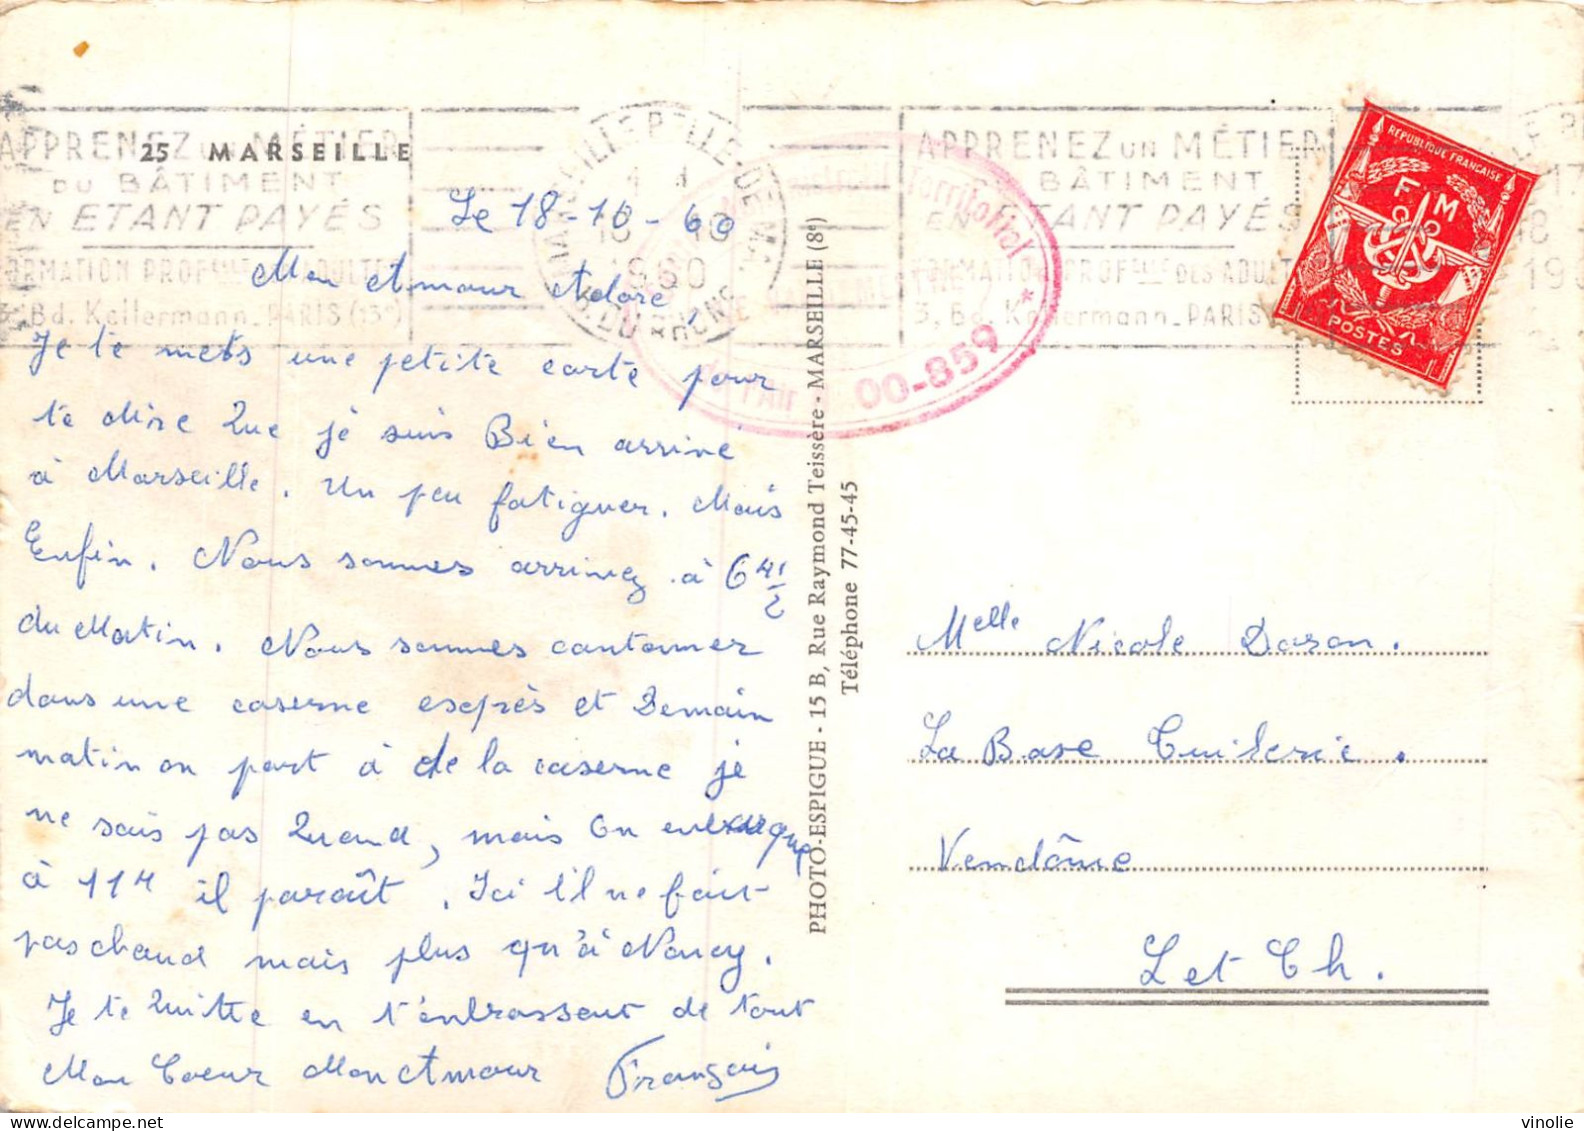 25 MARSEILLE
APPRENEZ UN MÉTIER
DU BÂTIMENT
EN ETANT PAYÉS
FORMATION PROFelle DES ADULTES
3, Bd. Kellermann_PARIS (13e)
MARSEILLE BELLE-DE-MAI
18 - 10
1960
B. DU RHÔNE
Territorial
de l'Air 00-859 *
APPRENEZ UN MÉTIER
DU BÂTIMENT
EN ETANT PAYÉS
FORMATION PROFelle DES ADULTES
3, Bd. Kellermann_PARIS
RÉPUBLIQUE FRANÇAISE
F M
POSTES
Le 18-10-60
Mon Amour Adoré
Je te mets une petite carte pour
te dire Que je suis Bien arrivé
à Marseille. Un peu fatiguer. Mais
Enfin. Nous sommes arrivez à 6H 1/2
du Matin. Nous sommes cantonner
dans une caserne exprès et Demain
matin on part à de la caserne je
ne sais pas Quand, mais On embarque
à 11H il paraît. Ici l'il ne fait
pas chaud mais plus qu'à Nancy.
Je te Quitte en t'enbrassent de tout
Mon Coeur Mon Amour François
PHOTO-ESPIGUE - 15 B, Rue Raymond Teissère - MARSEILLE (8e)
Téléphone 77-45-45
Melle Nicole Daron.
La Base Tuilerie.
Vendôme
L et Ch.
vinolie